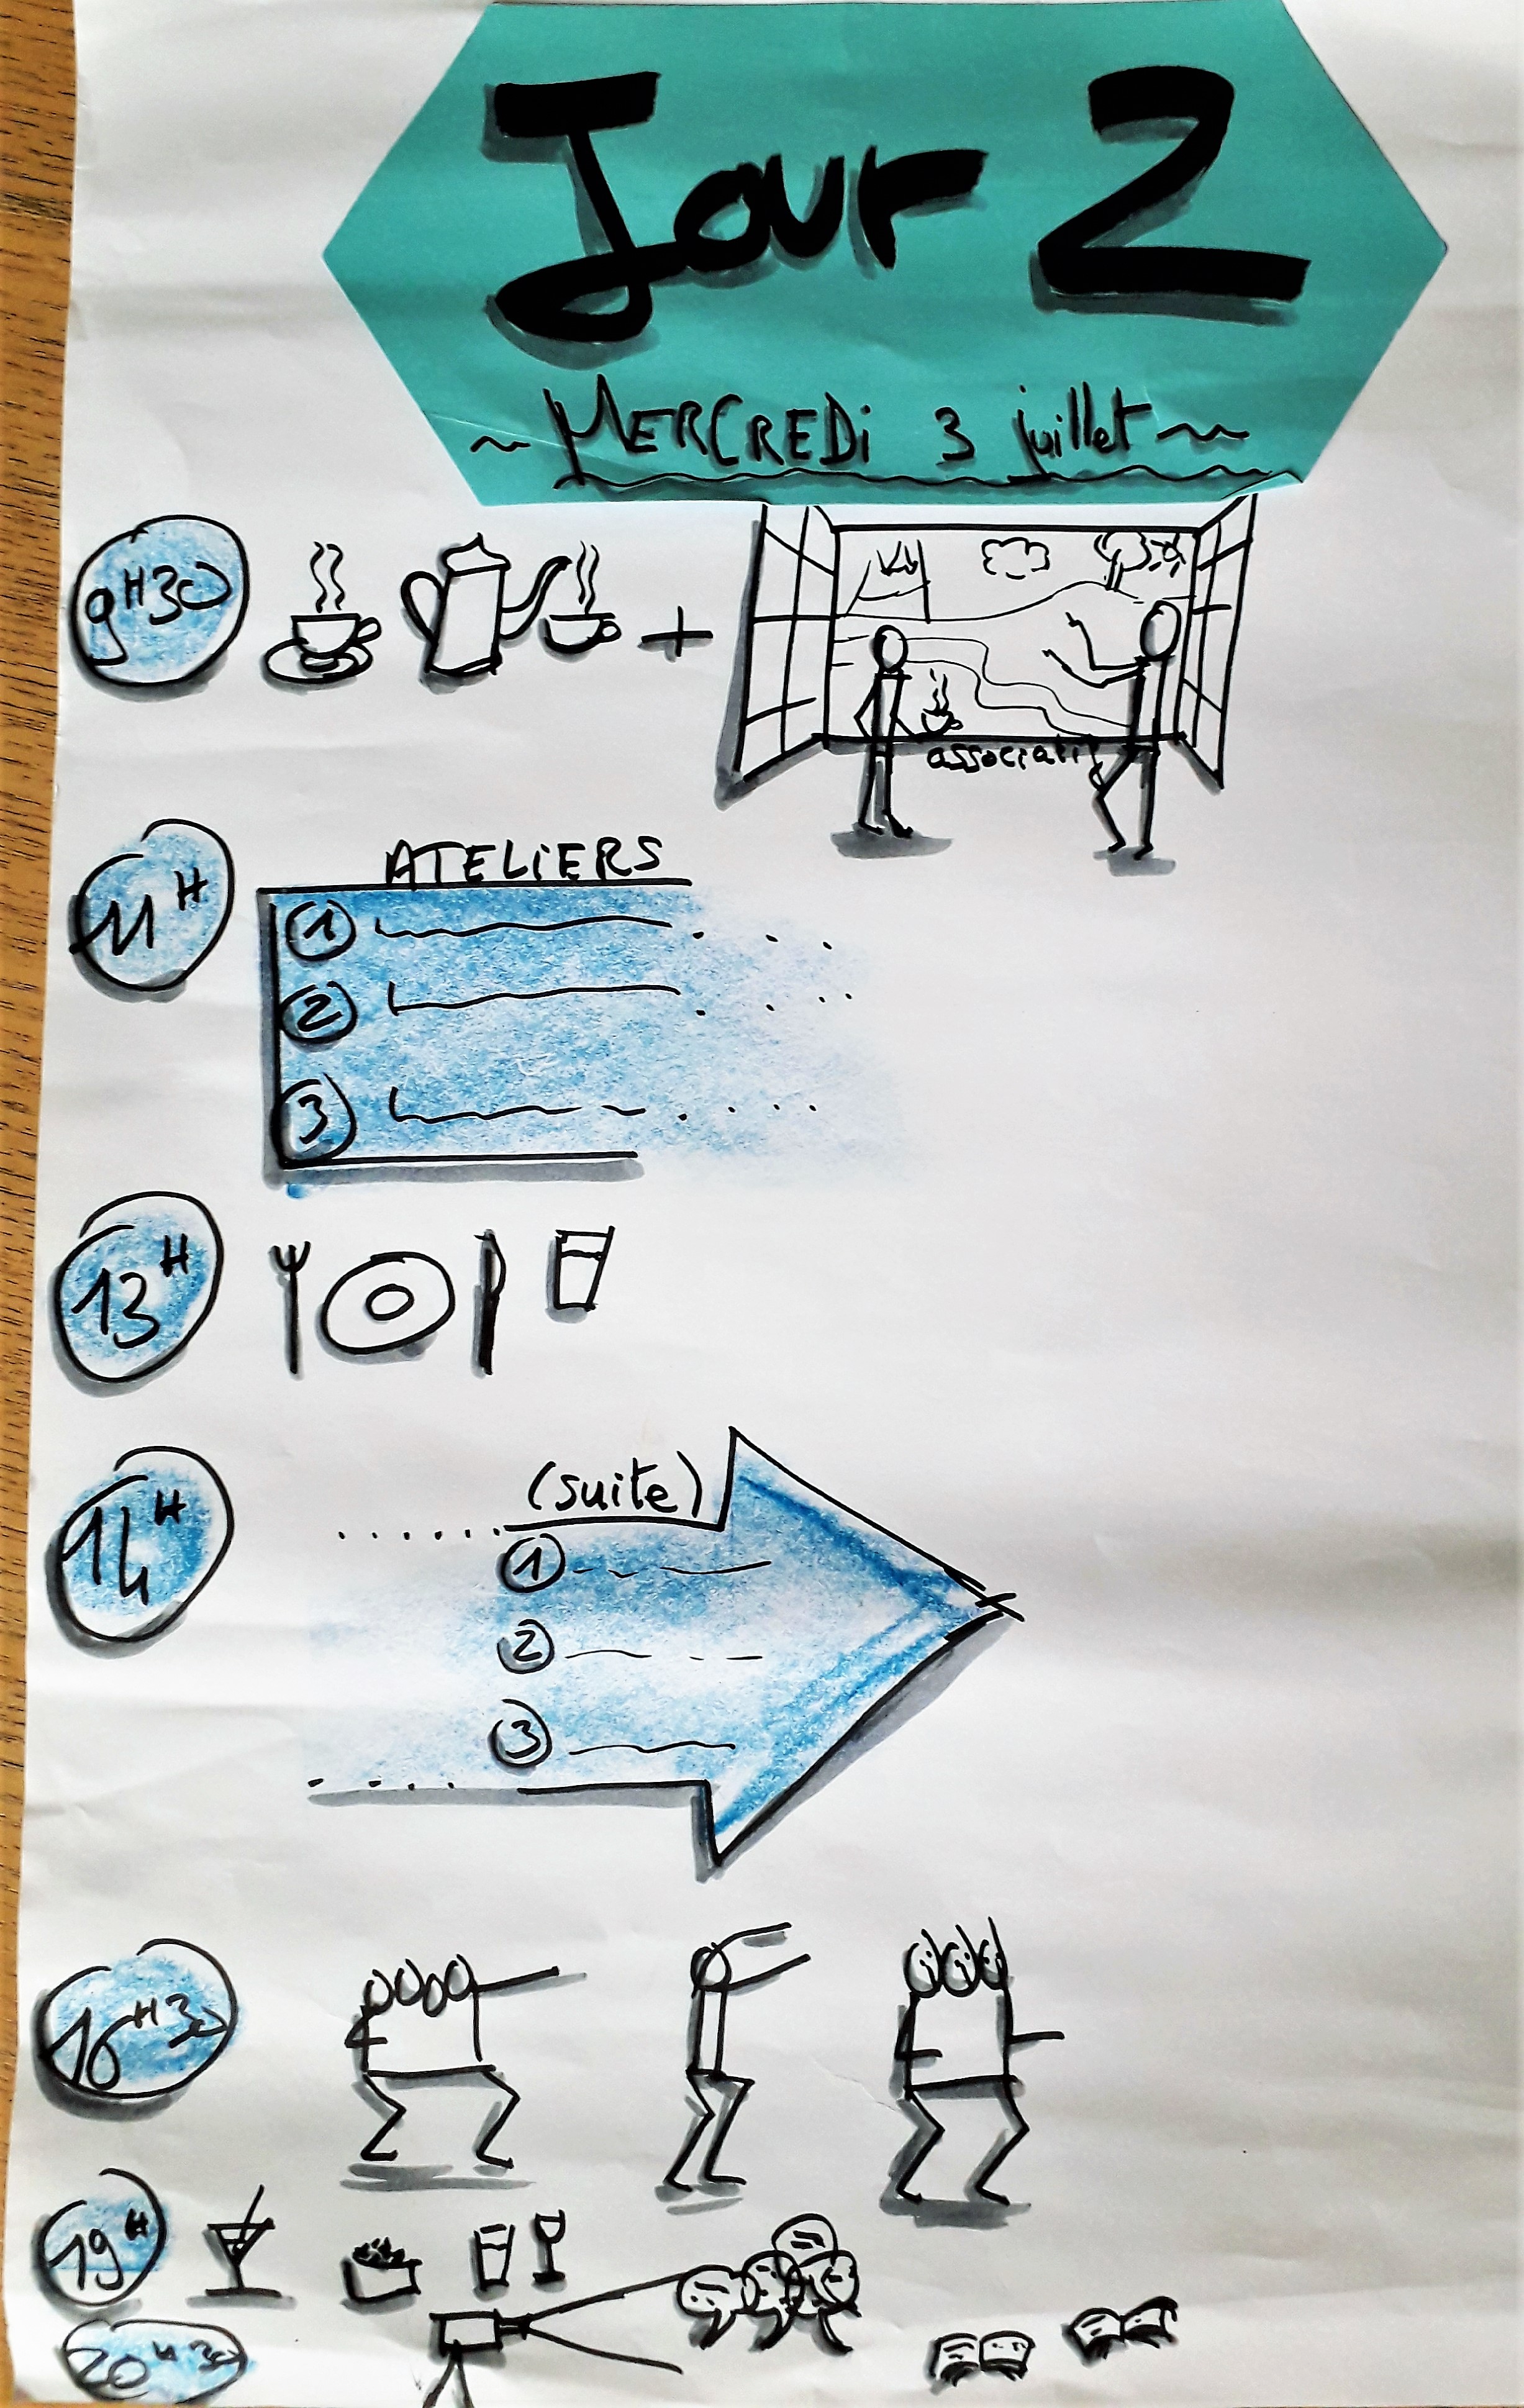 Jour 2
~ MERCREDi 3 juillet ~
9H30
+
associatif
11H
ATELiERS
1
2
3
13H
14H
(suite)
1
2
3
16H30
19H
20H30